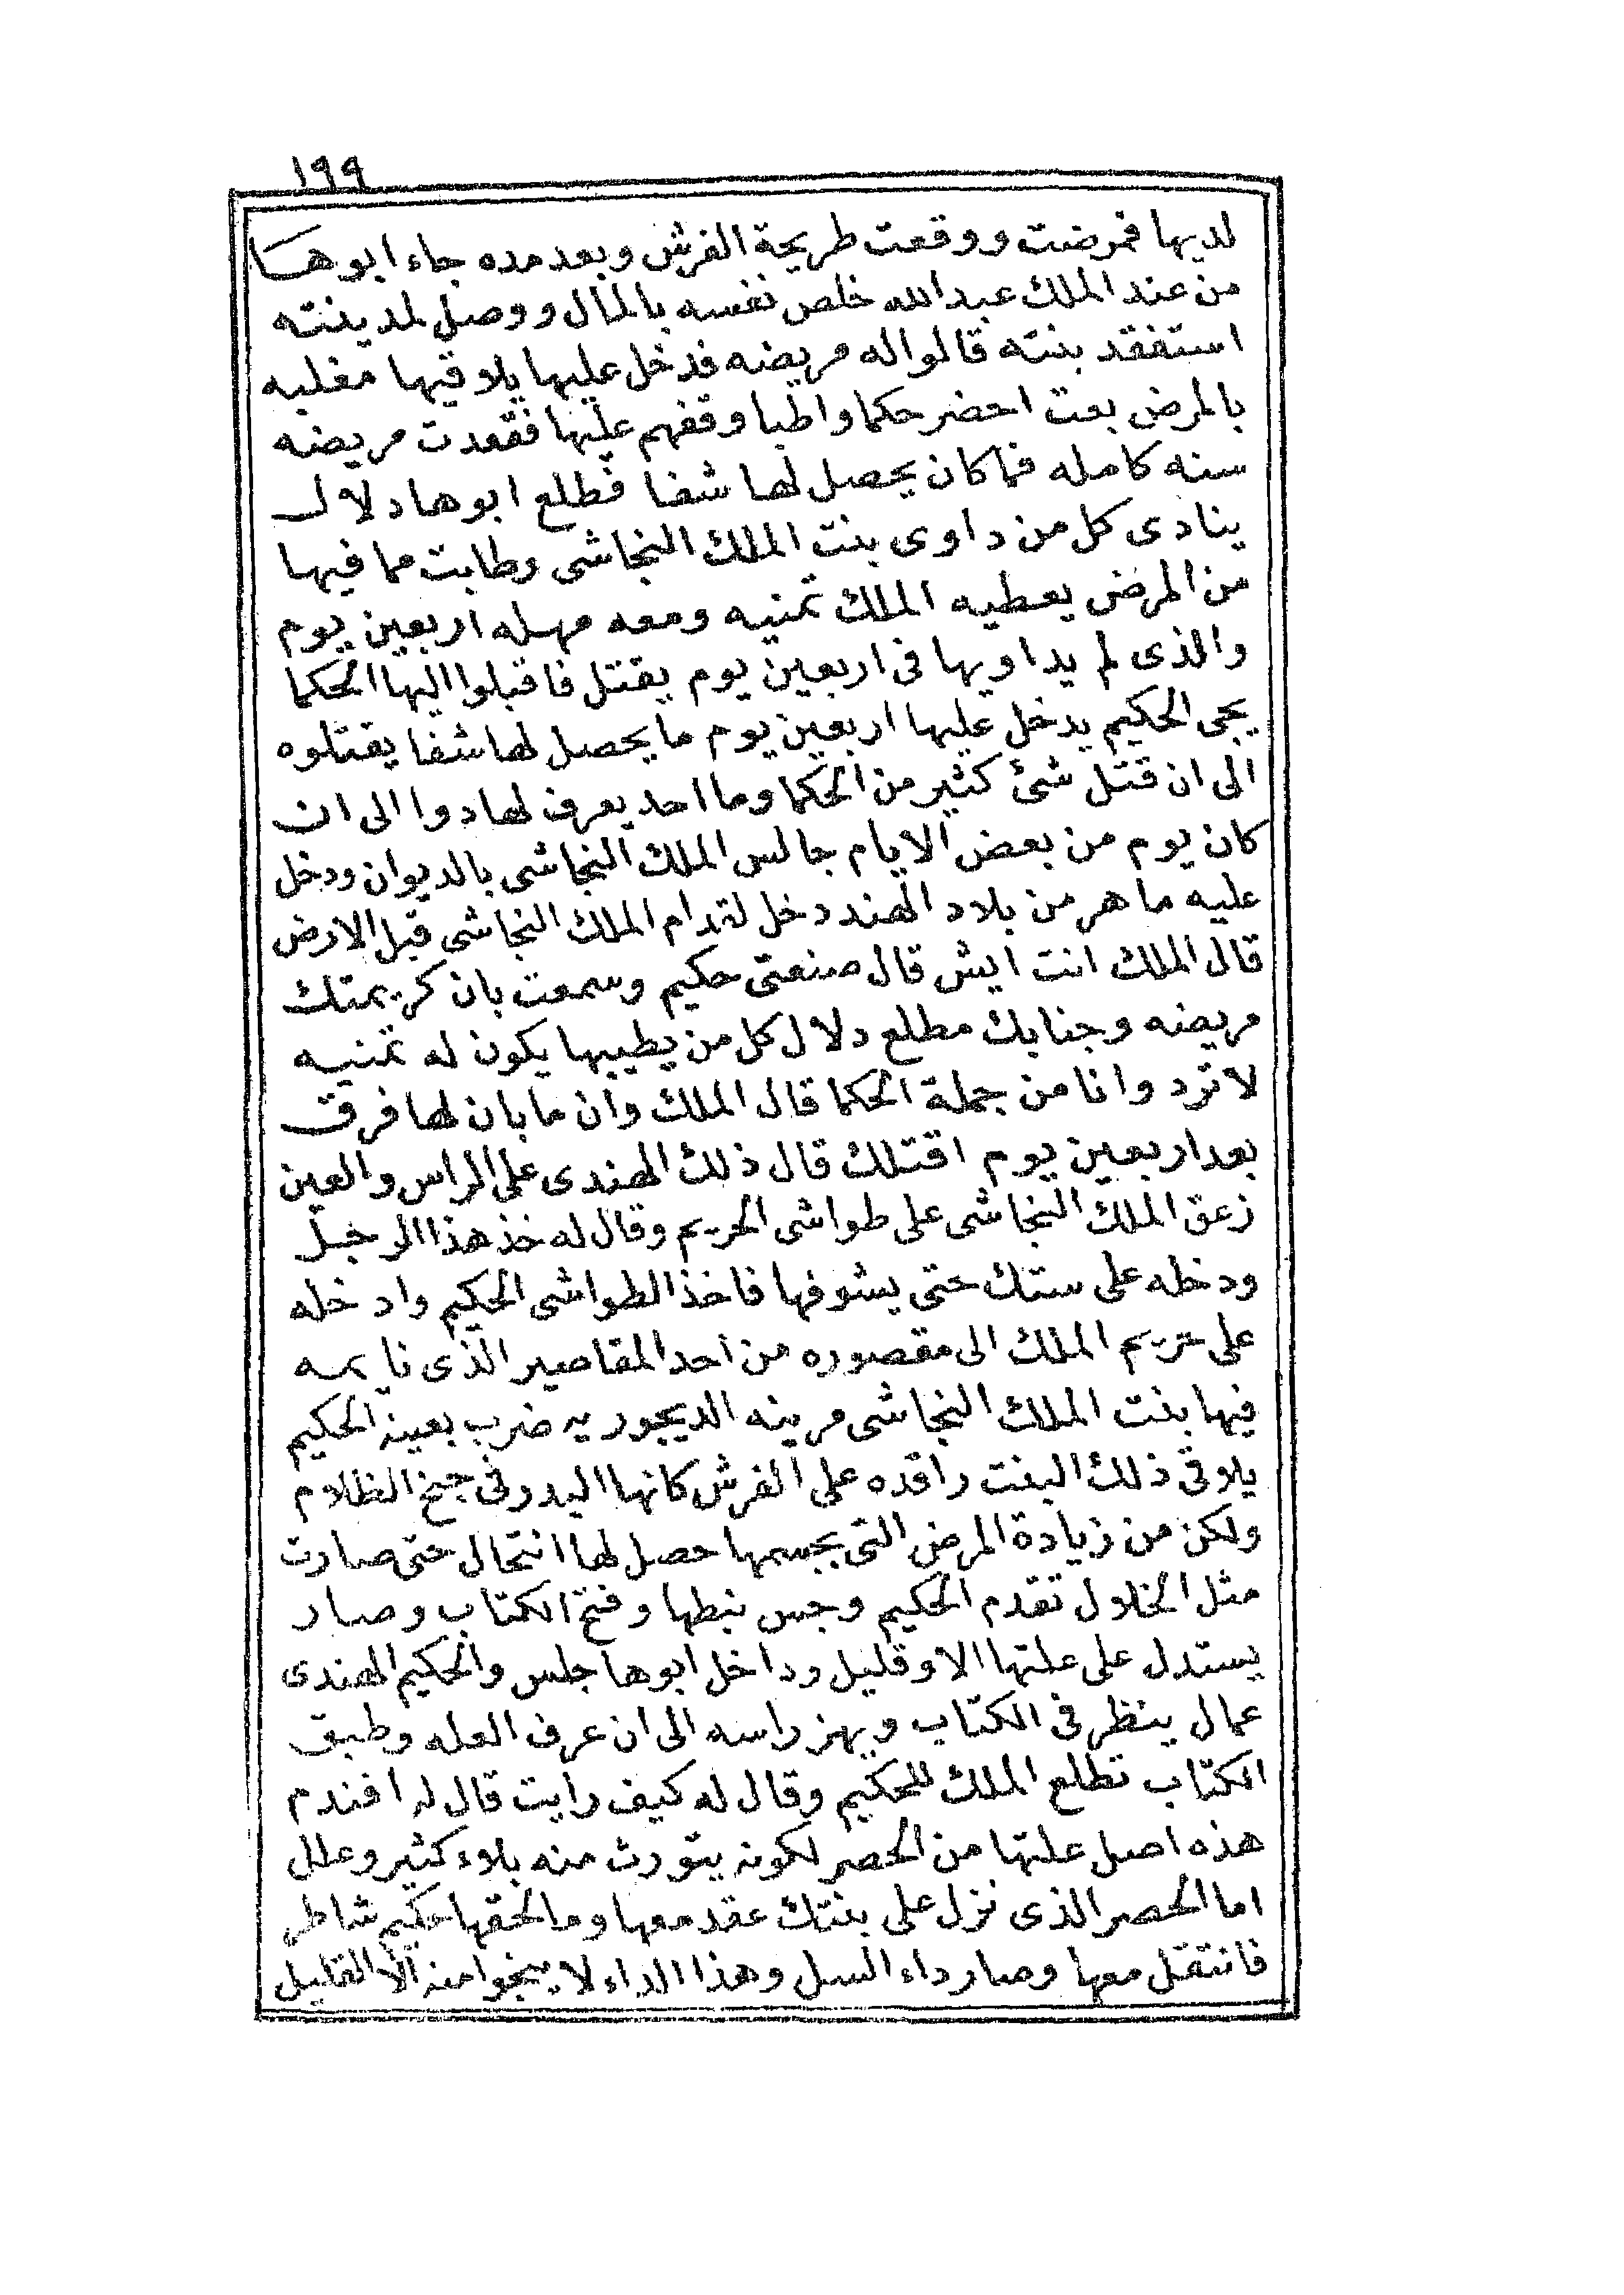 ١٩٩
لديها فمرضت ووقعت طريحة الفرش وبعد مده جاء ابوهـا
من عند الملك عبد الله خلص نفسه بالمال ووصل لمدينته
استفقد بنته قالواله مريضه فدخل عليها يلاقيها مغلبه
بالمرض بعت احضر حكما واطبا وقفهم عليها فقعدت مريضه
سنه كامله فما كان يحصل لها شفا فطلع ابوها دلال
ينادى كل من داوى بنت الملك النجاشى وطابت مما فيها
من المرض يعطيه الملك تمنيه ومعه مهله اربعين يوم
والذى لم يداويها فى اربعين يوم يقتل فاقبلوا اليها الحكما
يجى الحكيم يدخل عليها اربعين يوم ما يحصل لها شفا يقتلوه
الى ان قتل شئ كثير من الحكما وما احد يعرف لها دوا الى ان
كان يوم من بعض الايام جالس الملك النجاشى بالديوان ودخل
عليه ماهر من بلاد الهند دخل لقدام الملك النجاشى قبل الارض
قال الملك انت ايش قال صنعتى حكيم وسمعت بان كريمتك
مريضه وجنابك مطلع دلال كل من يطيبها يكون له تمنيه
لا ترد وانا من جملة الحكما قال الملك وان ما بان لها فرق
بعد اربعين يوم اقتلك قال ذلك الهندى على الراس والعين
زعق الملك النجاشى على طواشى الحريم وقال له خذ هذا الرجل
ودخله على ستك حتى يشوفها فاخذ الطواشى الحكيم وادخله
على حريم الملك الى مقصوره من احد المقاصير الذى نايمه
فيها بنت الملك النجاشى مرينه الديجوريه ضرب بعينه الحكيم
يلاقى ذلك البنت راقده على الفرش كانها البدر فى جنح الظلام
ولكن من زيادة المرض التى بجسمها حصل لها انتحال حتى صارت
مثل الخلال تقدم الحكيم وجس نبطها وفتح الكتاب وصار
يستدل على علتها الا وقليل وداخل ابوها جلس والحكيم الهندى
عمال ينظر فى الكتاب ويهز راسه الى ان عرف العله وطبق
الكتاب تطلع الملك للحكيم وقال له كيف رايت قال له افندم
هذه اصل علتها من الحصر لكونه يتورث منه بلاء كثير وعلل
اما الحصر الذى نزل على بنتك عقد معها وما لحقها حكيم شاطر
فانتقل معها وصار داء السل وهذا الداء لا ينجوا منه الا القليل